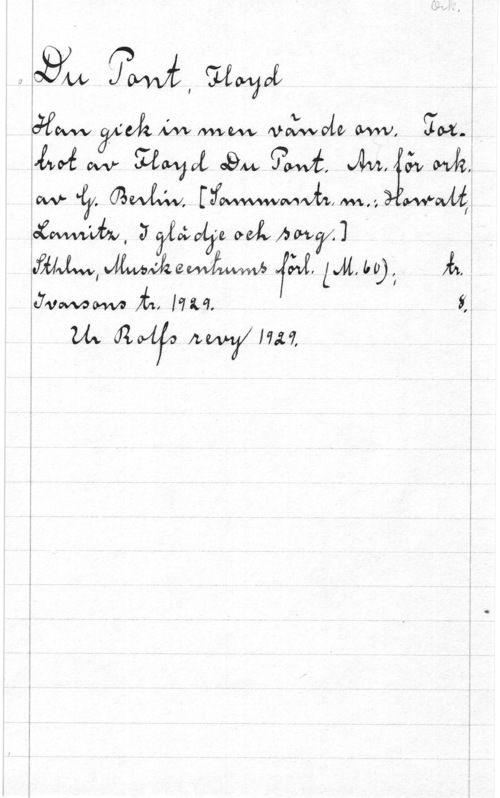 Ork.
Du Pont, Floyd
Han gick in men vände om. Fox-
trot av Floyd Du Pont. Arr. för ork.
av G. Berlin. [Sammantr. m.: Howalt,
Lauritz, I glädje och sorg.]
Sthlm, Musikcentrums förl. (M. 60); tr.
Ivarsons tr. 1929. 8.
Ur Rolfs revy 1929.